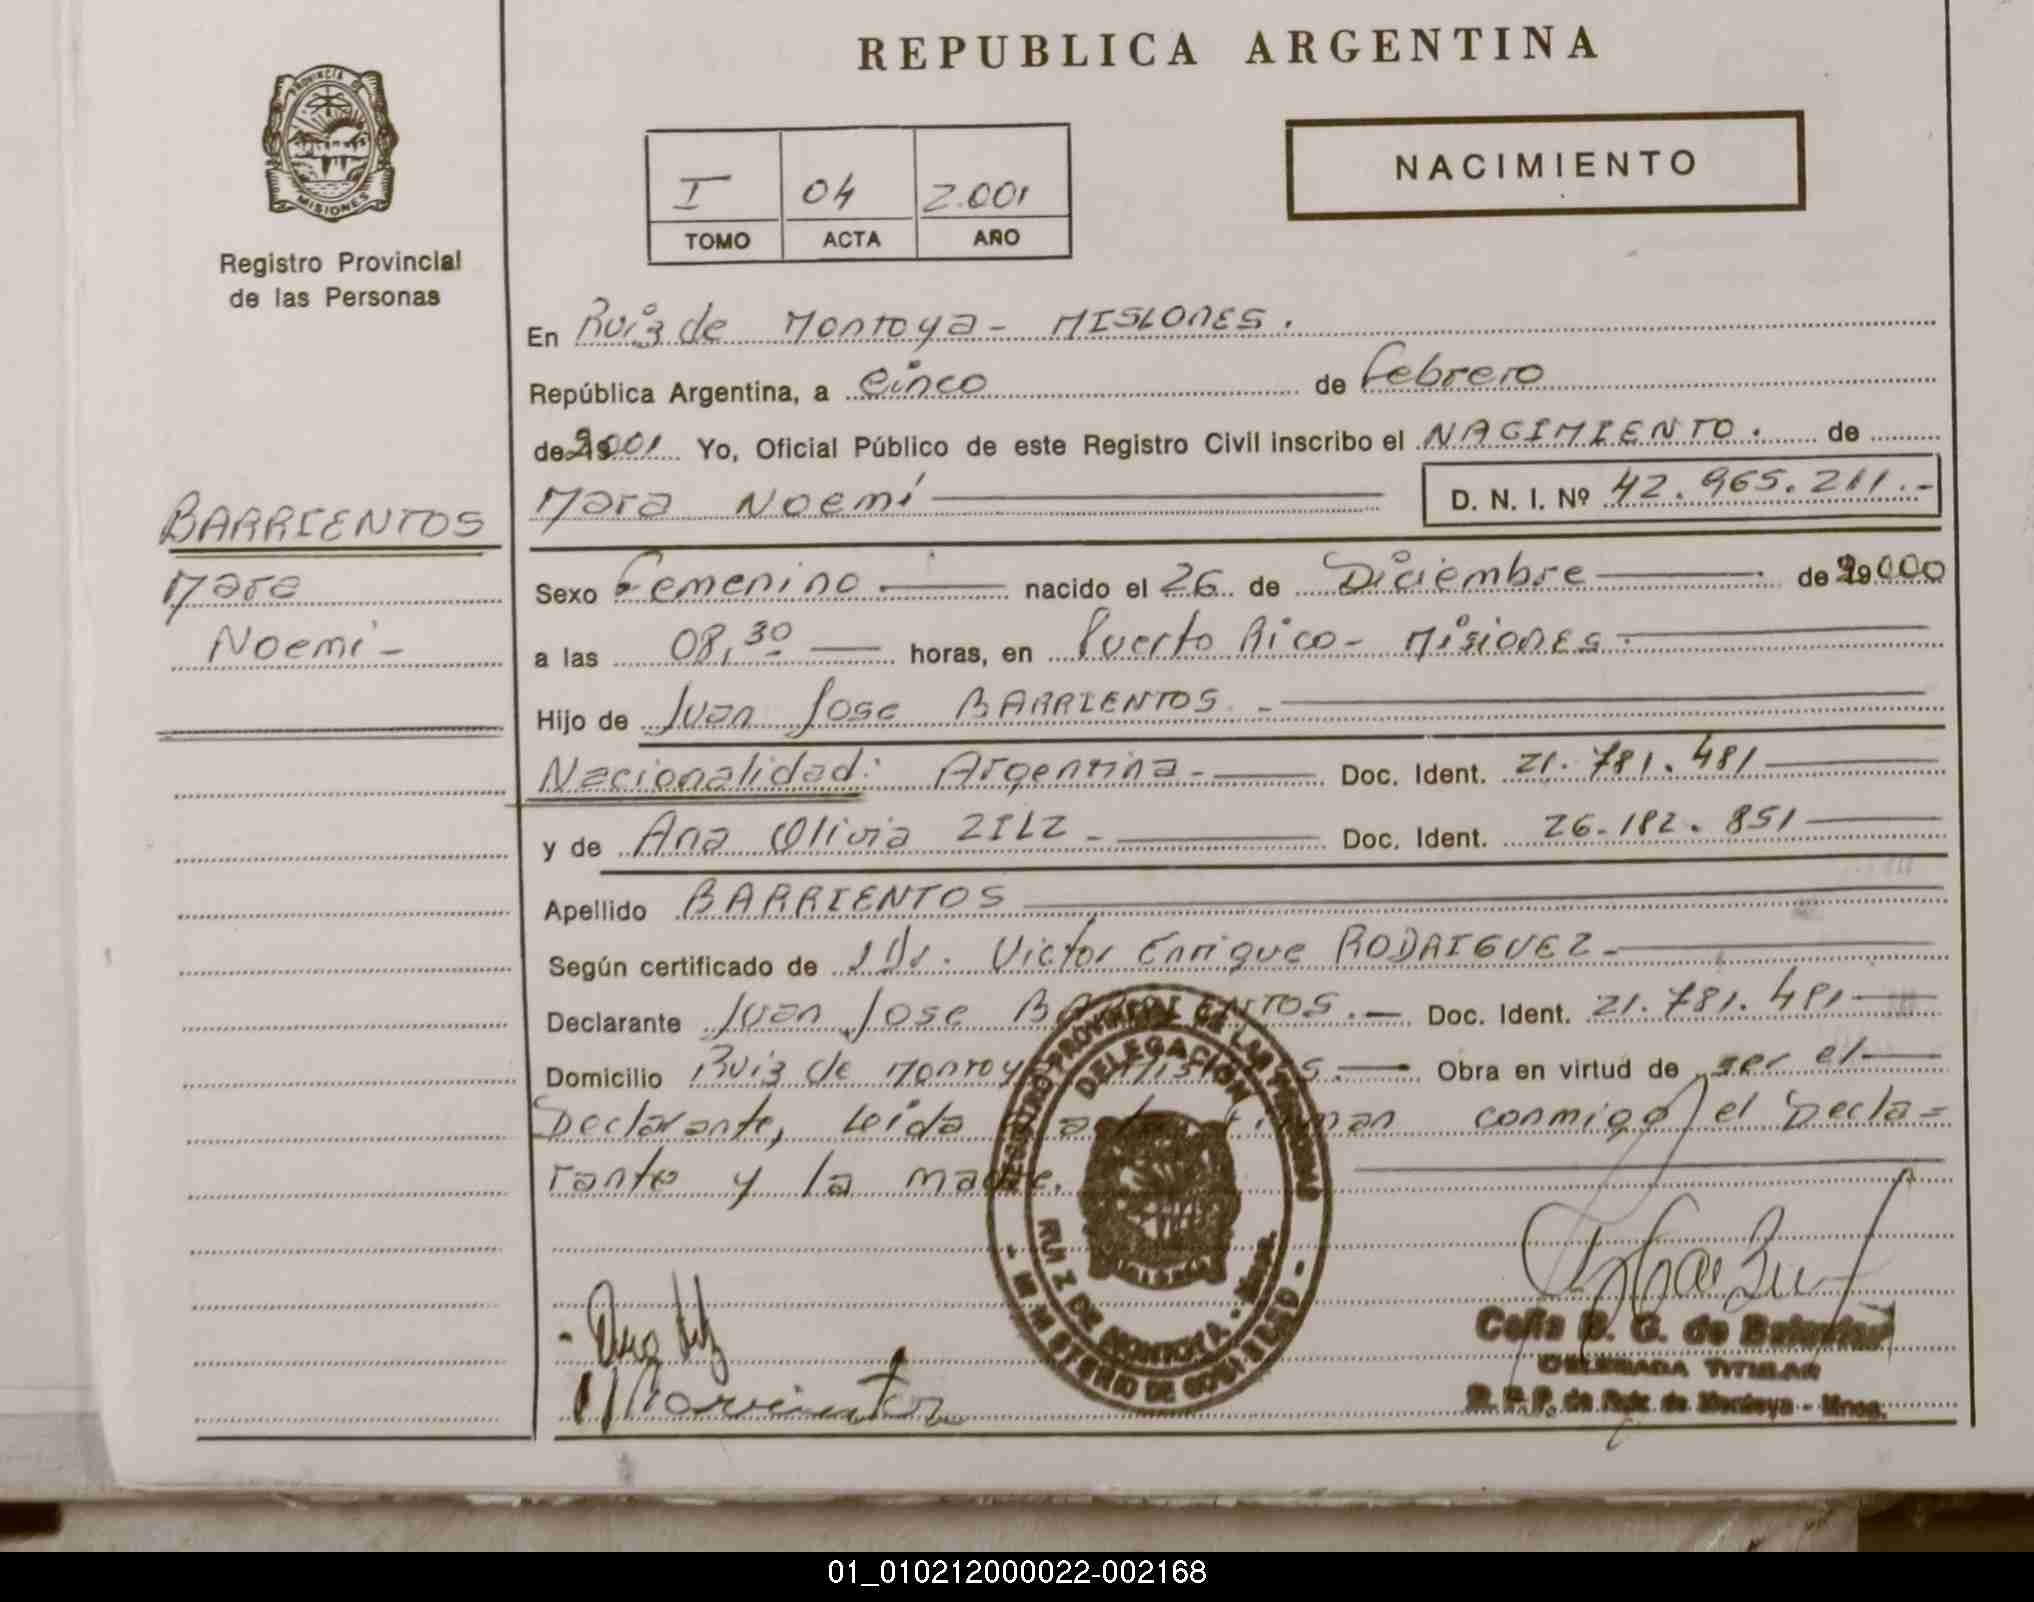 REPUBLICA ARGENTINA
PROVINCIA DE
MISIONES
Registro Provincial
de las Personas
I 04 2.001
TOMO ACTA AÑO
NACIMIENTO
En Ruiz de Montoya - MISIONES.
República Argentina, a Cinco de Febrero
de 2001 Yo, Oficial Público de este Registro Civil inscribo el NACIMIENTO. de
Mara Noemí D. N. I. Nº 42.965.211.-
BARRIENTOS
Mara
Noemí -
Sexo Femenino nacido el 26 de Diciembre de 2000
a las 08,30 horas, en Puerto Rico - Misiones.
Hijo de Juan Jose BARRIENTOS. -
Nacionalidad: Argentina - Doc. Ident. 21.781.481
y de Ana Olivia ZILZ - Doc. Ident. 26.182.851
Apellido BARRIENTOS
Según certificado de Dr. Victor Enrique RODRIGUEZ -
Declarante Juan Jose BARRIENTOS. - Doc. Ident. 21.781.481
Domicilio Ruiz de Montoya Misiones. Obra en virtud de ser el
Declarante, Leída acta firman conmigo el Decla=
rante y la madre.
REGISTRO PROVINCIAL DE LAS PERSONAS
DELEGACION
RUIZ DE MONTOYA - Mnes.
- MINISTERIO DE GOBIERNO -
Barrientos
Celia B. G. de
DELEGADA TITULAR
R. P. P. de Ruiz de Montoya - Mnes.
01_010212000022-002168